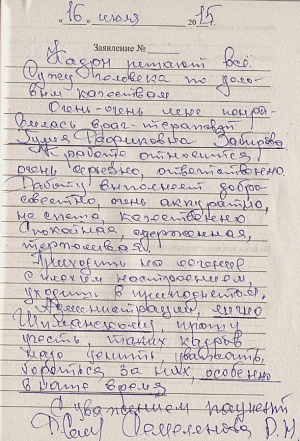 "16" июля 2015 г.
Заявление №
Надоп питают всё
Сужу человека по дело-
вым качествам
Очень-очень мне понра-
вилась врач-терапевт
Зулия Фаритовна Закирова
К работе относится
очень серьёзно, ответственно
Работу выполняет добро-
совестно, очень аккуратно,
не спеша, качественно
Спокойная, сдержанная,
терпеливая.
Приходишь на лечение
с плохим настроением,
уходишь в приподнятом.
Администрации, лично
Шиманскому, прошу
учесть, таких кадров
надо ценить, уважать,
бороться за них, особенно
в наше время
С уважением пациент